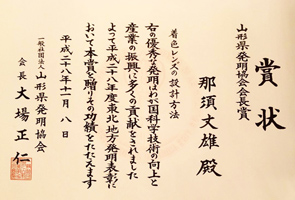 賞状
山形県発明協会会長賞
那須文雄殿
着色レンズの設計方法
右の優秀な発明はわが国科学技術の向上と
産業の振興に多くの貢献をされました
よって平成二十八年度東北地方発明表彰に
おいて本賞を贈りその功績をたたえます
平成二十八年十一月八日
一般社団法人山形県発明協会
会長大場正仁